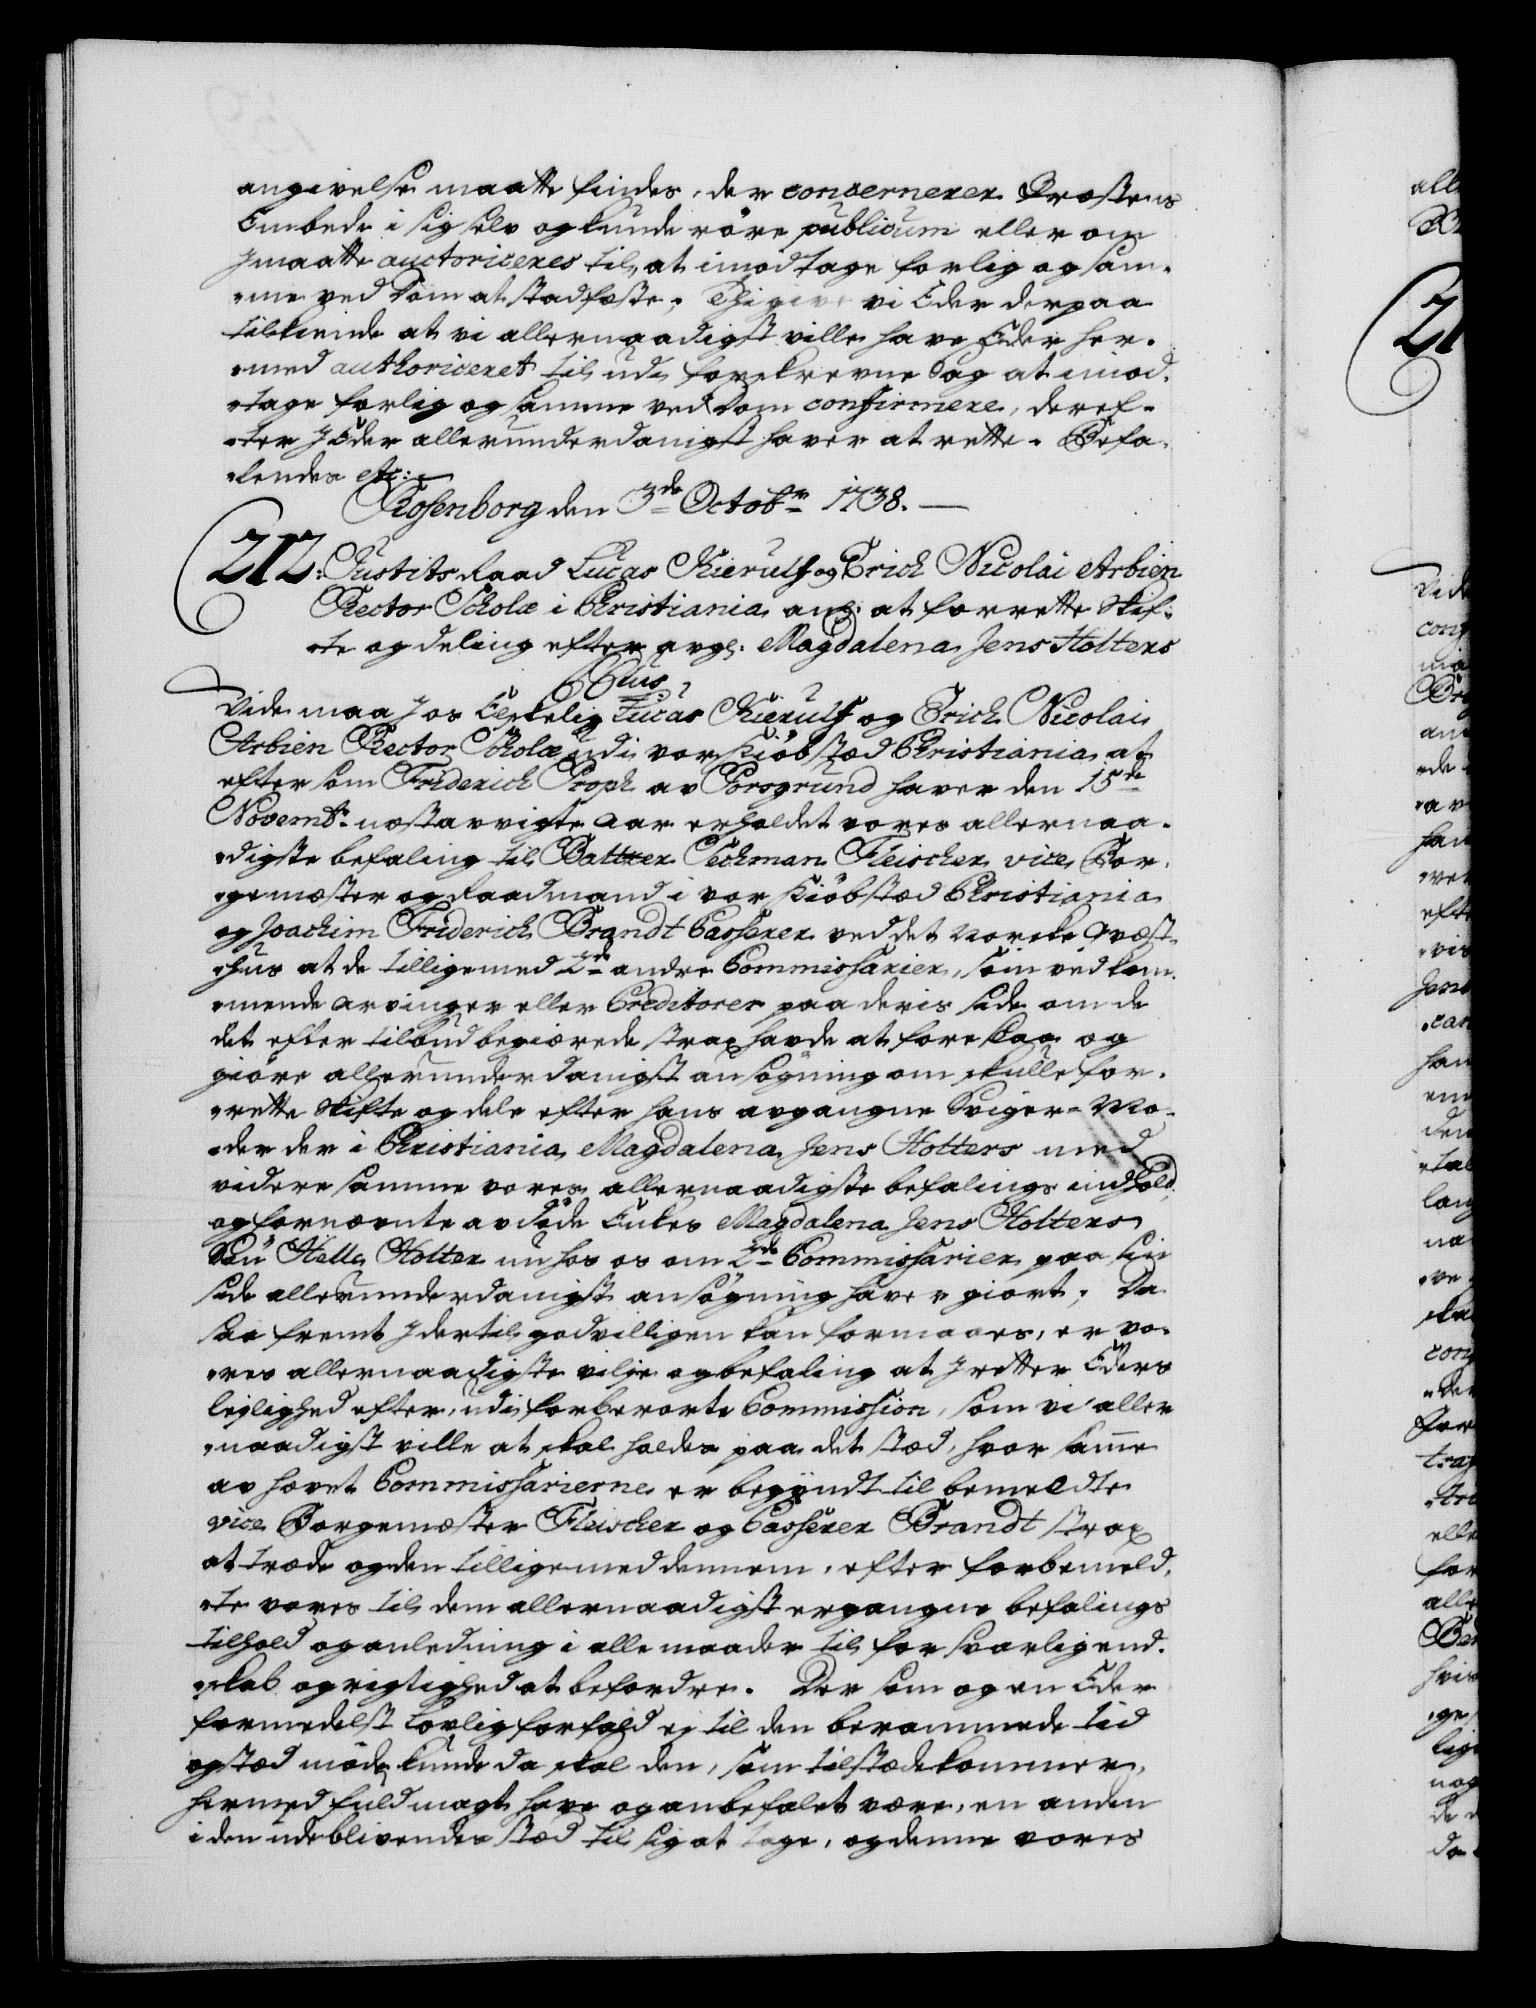 angivelse maatte findes, der concernerer Præstens
Embede i sig selv og kunde röre publicum eller om
I maatte auctoriceres til, at imodtage forlig og sam-
-me ved Dom at stadfæste; Thi give vi Eder derpaa
tilkiende at vi allernaadigst ville have Eder her-
-med authoriceret til udi forskrevne Sag at imod-
-tage forlig og samme ved Dom confirmere, deref-
-ter I Eder allerunderdanigst haver at rette. Befa-
-lendes etc:
Rosenborg den 3de Octobr 1738.
212: Justits Raad Lucas Kierulf og Erich Nicolai Arbien
Rector Scholæ i Christiania ang: at forrette Skif-
-te og deling efter avg: Magdalena Jens Holters
C Vtus
Vide maa I os Elskelig Lucas Kierulf og Erich Nicolai
Arbien Rector Scholæ udi vor Kiöbstæd Christiania, at
eftersom Friderich Proph av Porsgrund haver den 15de
Novembr næstavvigte Aar erholdet vores allernaa-
-digste befaling til Baltzer Sechman Fleischer vice Bor-
-gemæster og Raadmand i vor Kiöbstæd Christiania
og Joachim Friderich Brandt Casserer ved det norske Qvæst-
-hus at de tilligemed 2de andre Commissarier, som vedkom-
-mende Arvinger eller Creditorer paa deris side om de
det efter tilbud begiærede strax havde at foreslaa og
giöre allerunderdanigst ansögning om skulle for-
-rette Skifte og dele efter hans avgangne Sviger-Mo-
-der der i Christiania Magdalena Jens Holters med
videre samme vores allernaadigste befalings indhold.
og fornævnte avdöde Enkes Magdalena Jens Holters
Sön Helle Holter nu hos os om 2de Commissarier paa sin
side allerunderdanigst ansögning haver giort; Da
saa fremt I dertil godvilligen kan formaaes, er vo-
-res allernaadigste vilje og befaling at I retter Eders
lejlighed efter, udi forberörte Commission, som vi aller
-naadigst ville at skal holdes paa det stæd, hvor samme
av hovet Commissarierne er begÿndt til bemeldte
vice Borgemæster Fleischer og Casserer Brandt strax
at træde og den tilligemed dennem, efter forbemeld-
-te vores til dem allernaadigst ergangne befalings
tilhold og anledning i alle maader til forsvarlig end-
-skab og rigtighed at befordre. Der som og en Eder
formedelst lovlig forfald ej til den berammede tid
og stæd möde kunde da skal den, som tilstædekommer,
hermed fuldmagt have og anbefalet være, en anden
i den udeblivendes stæd til sig at tage, og denne vores